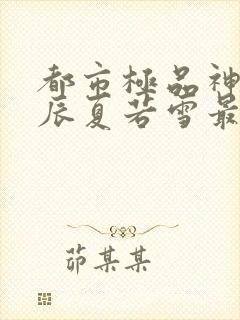 都市極品神
辰夏若雪最
茆某某